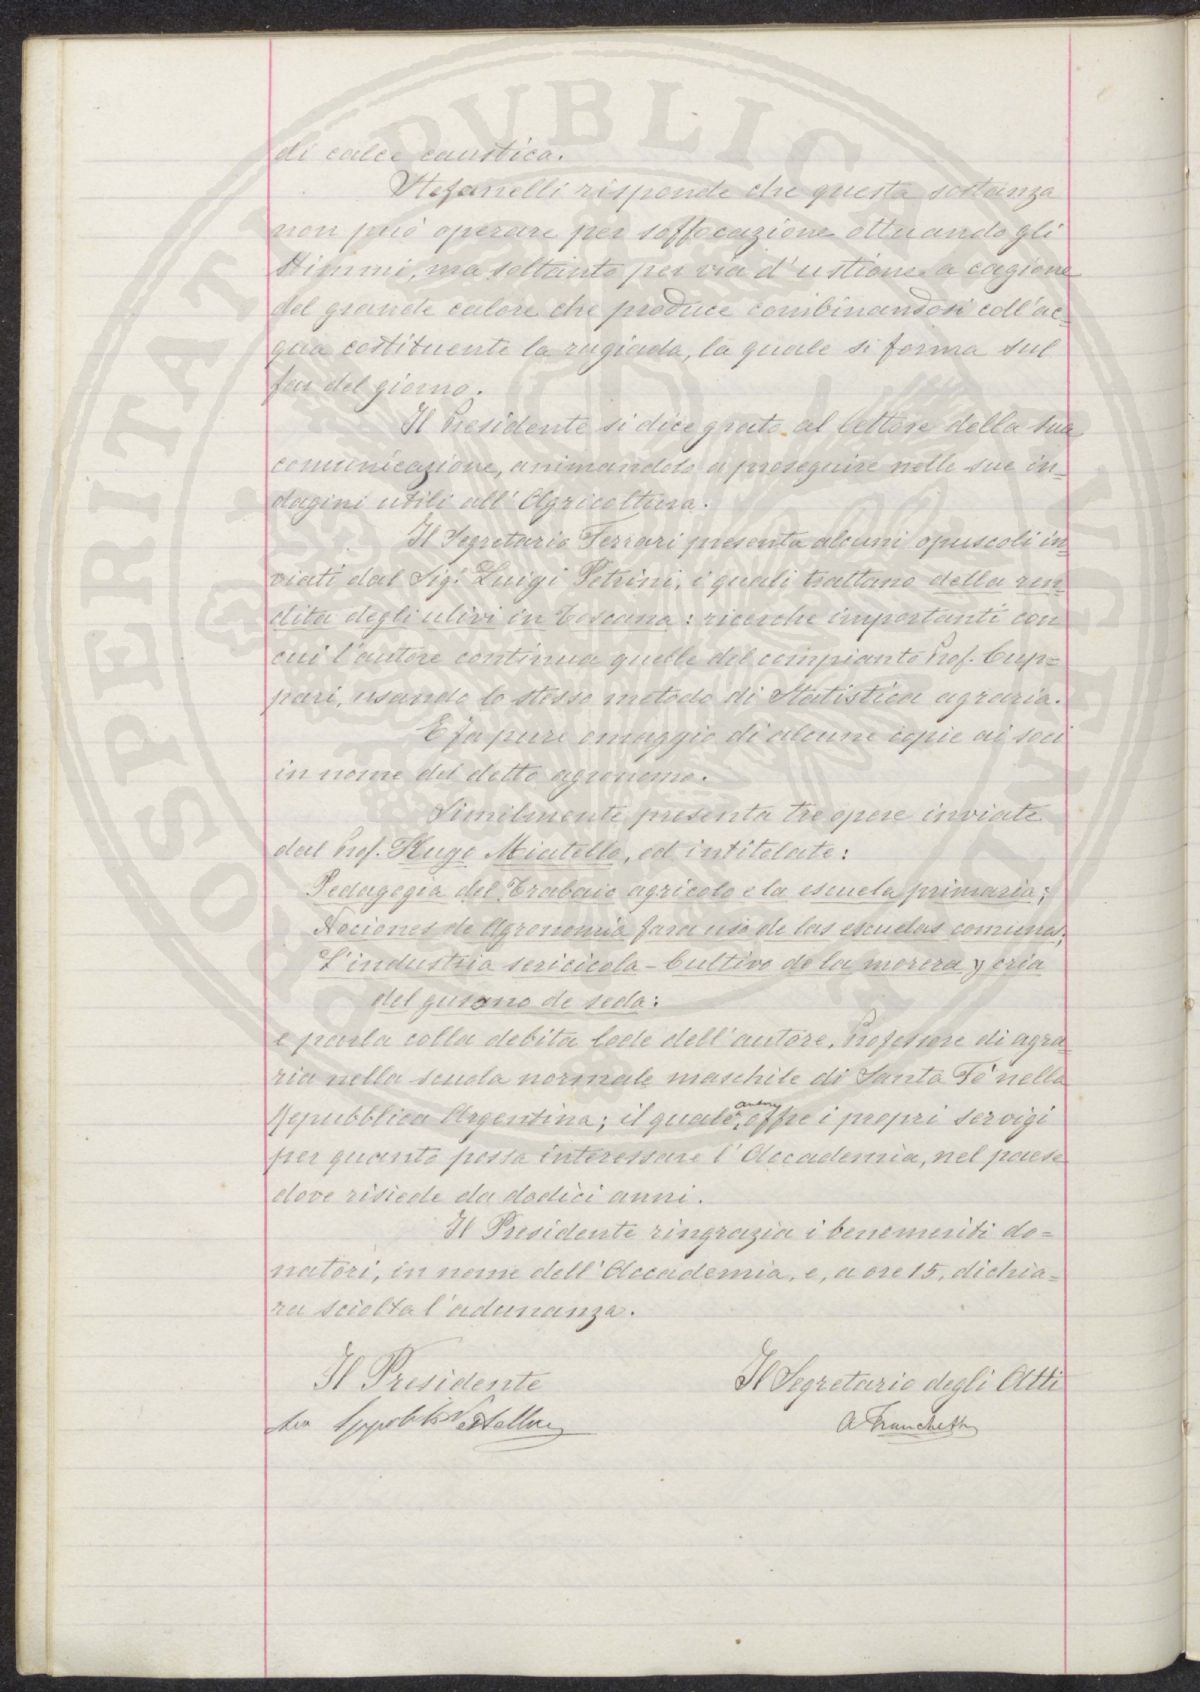 di calce caustica.
Stefanelli risponde che questa sostanza
non può operare per soffocazione otturando gli
stimmi, ma soltanto per via d'ustione a cagione
del grande calore che produce combinandosi coll'ac=
qua costituente la rugiada, la quale si forma sul
far del giorno.
Il Presidente si dice grato al lettore della sua
comunicazione, animandolo a proseguire nelle sue in=
dagini utili all'Agricoltura.
Il Segretario Ferrari presenta alcuni opuscoli in=
viati dal Sig. Luigi Petrini, i quali trattano della ren=
dita degli ulivi in Toscana: ricerche importanti con
cui l'autore continua quelle del compianto Prof. Cup=
pari, usando lo stesso metodo di Statistica agraria.
E fa pure omaggio di alcune copie ai soci
in nome del detto agronomo.
Similmente presenta tre opere inviate
dal Prof. Hugo Miatello, ed intitolate:
Pedagogia del Trabaio agricolo e la escuela primaria;
Nociones de Agronomia para uso de las escuelas comunes;
L'industria sericicola - Cultivo de la morera y cria
del gusano de seda:
e parla colla debita lode dell'autore, Professore di agra=
ria nella scuola normale maschile di Santa Fè nella
Repubblica Argentina; il quale anche offre i propri servigi
per quanto possa interessare l'Accademia, nel paese
dove risiede da dodici anni.
Il Presidente ringrazia i benemeriti do=
natori, in nome dell'Accademia, e, a ore 15, dichia=
ra sciolta l'adunanza.
Il Presidente
Il Segretario degli Atti
A Franchetti
PROSPERITATI PVBLICAE AVGENDAE